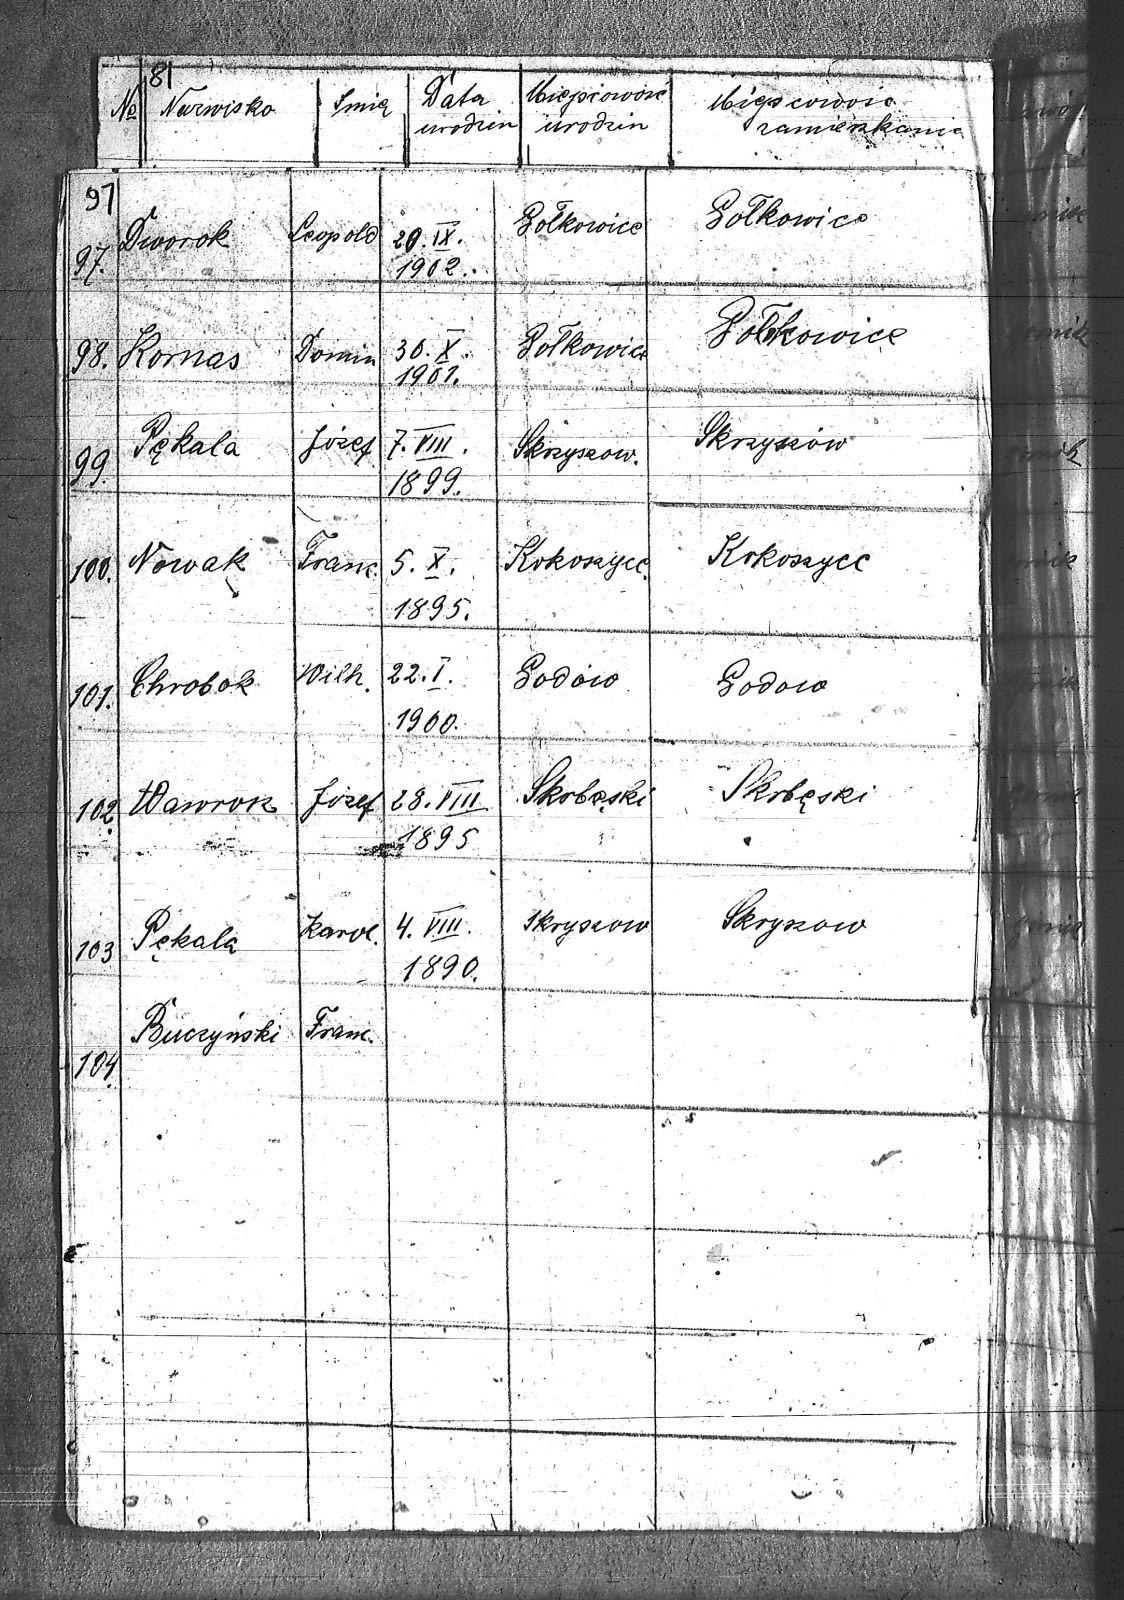 81
№ Nazwisko Imię Data urodzin Miejscowość urodzin Miejscowość zamieszkania
97
97. Dworok Leopold 20. IX. 1902. Gołkowice Gołkowice
98. Kornas Domin 30. X. 1901. Gołkowice Gołkowice
99. Pękala Józef 7. VIII. 1899. Skrzyszow. Skrzyszów
100. Nowak Franc. 5. X. 1895. Kokoszyce. Kokoszyce
101. Chrobok Wilh. 22. I. 1900. Godów Godow
102. Wawrok Józef 28. VIII 1895 Skrbęski Skrbęski
103 Pękala Karol. 4. VIII. 1890. Skryszow Skryszow
104. Buczyński Franc.